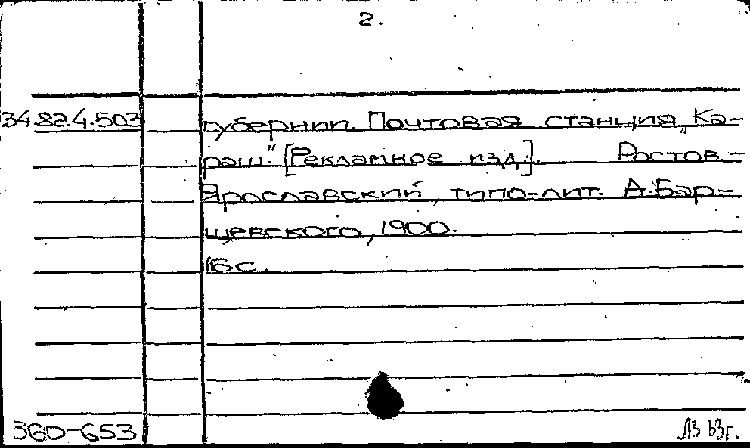 2.
34.82.4.503
губернии. Почтовая станция „Ка-
раш." [Рекламное изд.]. Ростов-
Ярославский, типо-лит. А. Бар-
щевского, 1900.
16 с.
360-653
ЛЗ 63г.